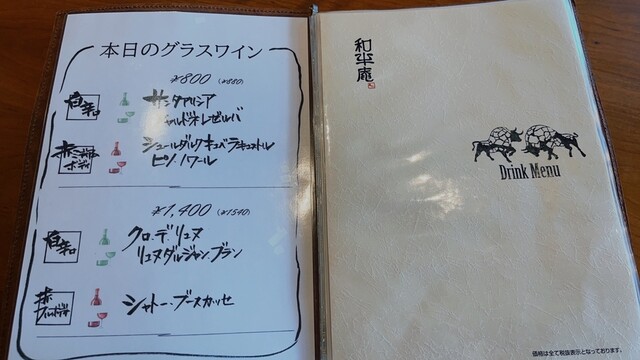 本日のグラスワイン
¥800 (¥880)
白辛口
サンタアリシア
シャルドネ レゼルバ
ジュールダルク キュベラキュストル
ピノ・ノワール
¥1,400 (¥1540)
白辛口
クロ・デ・リュヌ
リュヌダルジャン・ブラン
赤
フルボディ
シャトー・ブースカッセ
和平庵
Drink Menu
価格は全て税抜表示となっております。